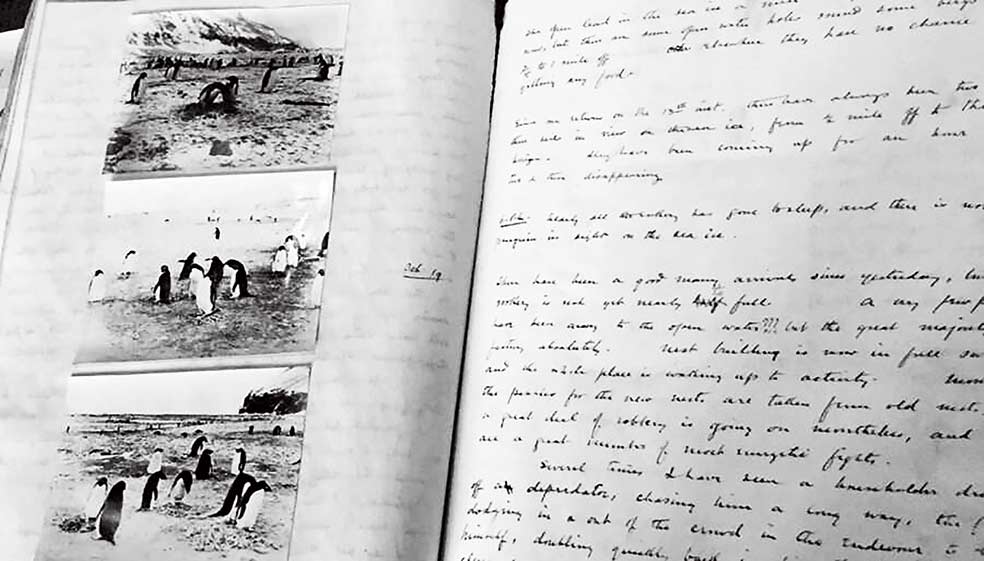 Oct 19
open lead in the sea ice a mile
but there are some open water holes round some bergs
¾ to 1 mile off elsewhere they have no chance
getting any food.
return on the inst. there have always been two
in view on the sea ice, from ½ mile off to the
They have been coming up for an hour
& then disappearing
nearly all rookery has gone to sleep, and there is not
penguin in sight on the sea ice.
There have been a good many arrivals since yesterday, but
rookery is not yet nearly half full a very few
have been away to the open water??? but the great majority
fasting absolutely. Nest building is now in full
and the whole place is waking up to activity. Most
the pebbles for the new nests are taken from old nests,
a great deal of robbery is going on nevertheless, and
are a great number of most energetic fights.
Several times I have seen a householder
off a depredator, chasing him a long way, the
dodging in & out of the crowd in the endeavour to
himself, doubling quickly back